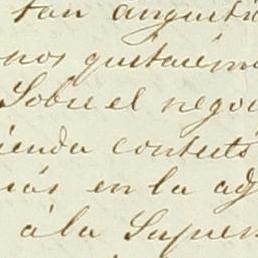 tan angusti
nos quitaron
Sobre el nego
ienda contesto
más en la ag
á la Supe